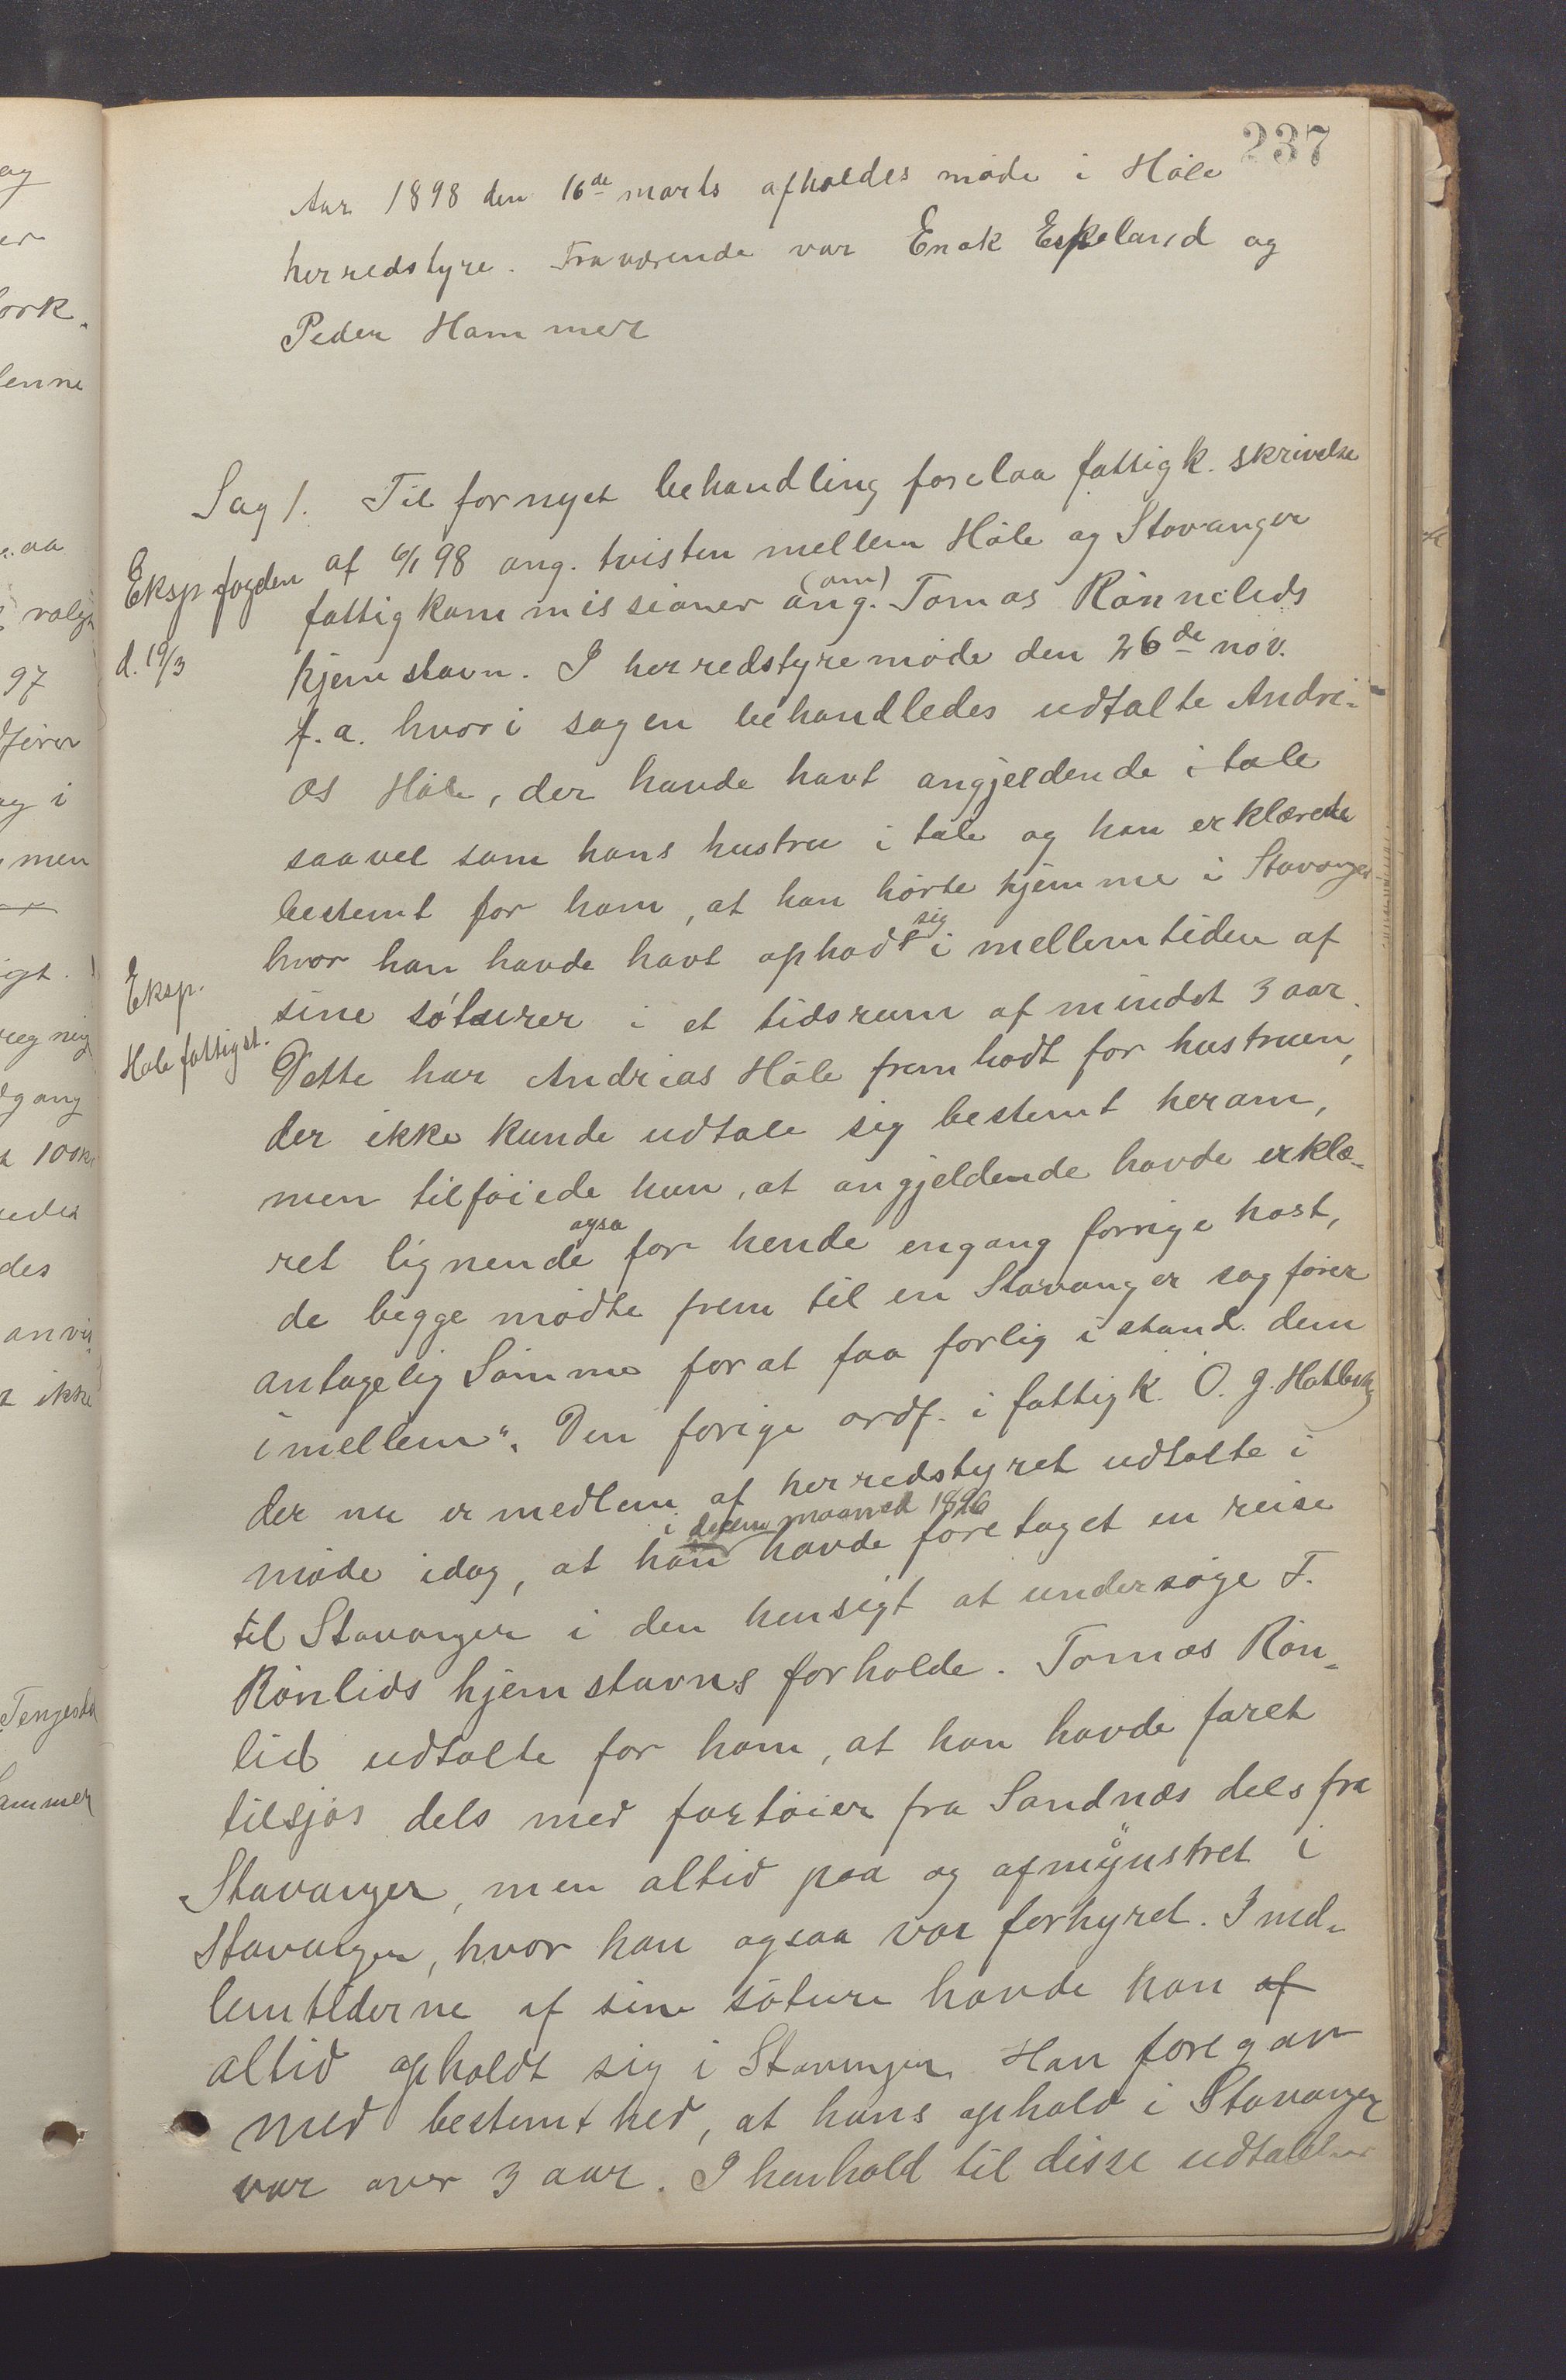 237
Aar 1898 den 16de marts afholdes møde i Høle
herredstyre. Fraværende var Enok Eskeland og
Peder Hammer
Sag 1. Til fornyet behandling forelaa fattigk. skrivelse
af 6/1 98 ang. tvisten mellem Høle og Stavanger
fattigkommissioner ang. (om) Tomas Rønnelids
hjemstavn. I herredstyremøde den 26de nov.
f. a. hvori sagen behandledes udtalte Andre-
as Høle, der havde havt angjeldende i tale
saavel som hans hustru i tale og han erklærede
bestemt for ham, at han hørte hjemme i Stavanger
hvor han havde havt ophodt sig i mellemtiden af
sine søturer i et tidsrum af mindst 3 aar.
Dette har Andreas Høle fremhodt for hustruen,
der ikke kunde udtale sig bestemt herom,
men tilføiede hun, at angjeldende havde erklæ-
ret lignende ogsa for hende engang forrige høst,
de begge mødte frem til en Stavanger sagfører
antagelig Sømme for at faa forlig istand dem
imellem". Den forige ordf. i fattigk. O. G.
der nu er medlem af herredstyret udtalte i
møde idag, at han i decem maaned 1896 havde foretaget en reise
til Stavanger i den hensigt at undersøge T.
Rønlids hjemstavns forholde. Tomas Røn-
lid udtalte for ham, at han havde faret
tilsjøs dels med fartøier fra Sandnæs dels fra
Stavanger, men altid paa og afmynstret i
Stavanger, hvor han ogsaa var forhyret. I mel-
lemtiderne af sine søture havde han af
altid opholdt sig i Stavanger. Han foregav
med bestemthed, at hans ophold i Stavanger
var over 3 aar. I henhold til disse udtalelser
Eksp fogden
d. 19/3
Eksp.
Høle fattigst.